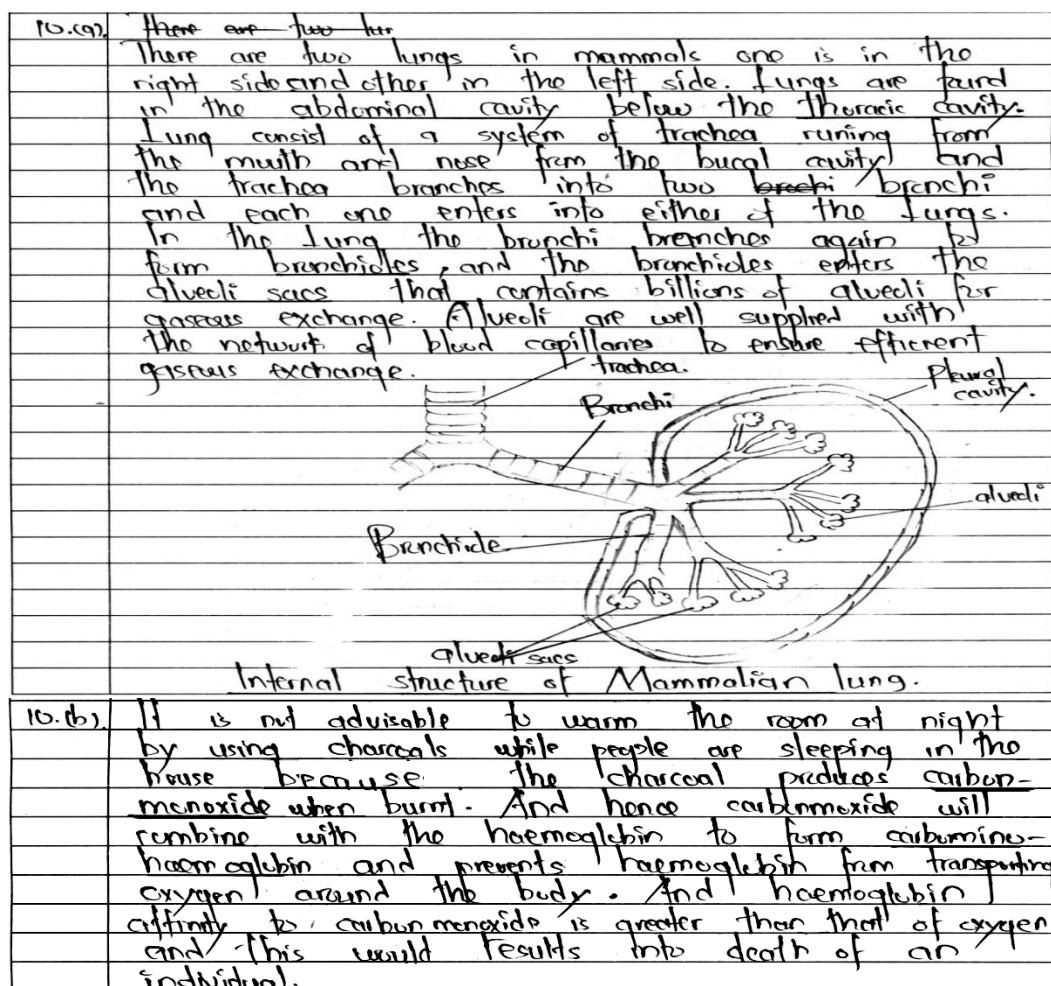 10.(a). There are two lun
There are two lungs in mammals one is in the
right side and other in the left side. Lungs are found
in the abdominal cavity below the thoracic cavity.
Lung consist of a system of trachea runing from
the mouth and nose from the bucal cavity and
the trachea branches into two brochi bronchi
and each one enters into either of the Lungs.
In the Lung the bronchi branches again to
form bronchioles, and the bronchioles enters the
alveoli sacs that contains billions of alveoli for
gaseous exchange. Alveoli are well supplied with
the network of blood capillaries to ensure efficient
gaseous exchange.
trachea.
Pleural
cavity.
Bronchi
alveoli
Bronchiole
alveoli sacs
Internal structure of Mammalian lung.
10.(b). It is not advisable to warm the room at night
by using charcoals while people are sleeping in the
house because the charcoal produces carbon-
monoxide when burnt. And hence carbonmoxide will
combine with the haemoglobin to form carbomino-
haemoglobin and prevents haemoglobin from transporting
oxygen around the body. And haemoglobin
affinity to carbon monoxide is greater than that of oxygen
and this would results into death of an
individual.